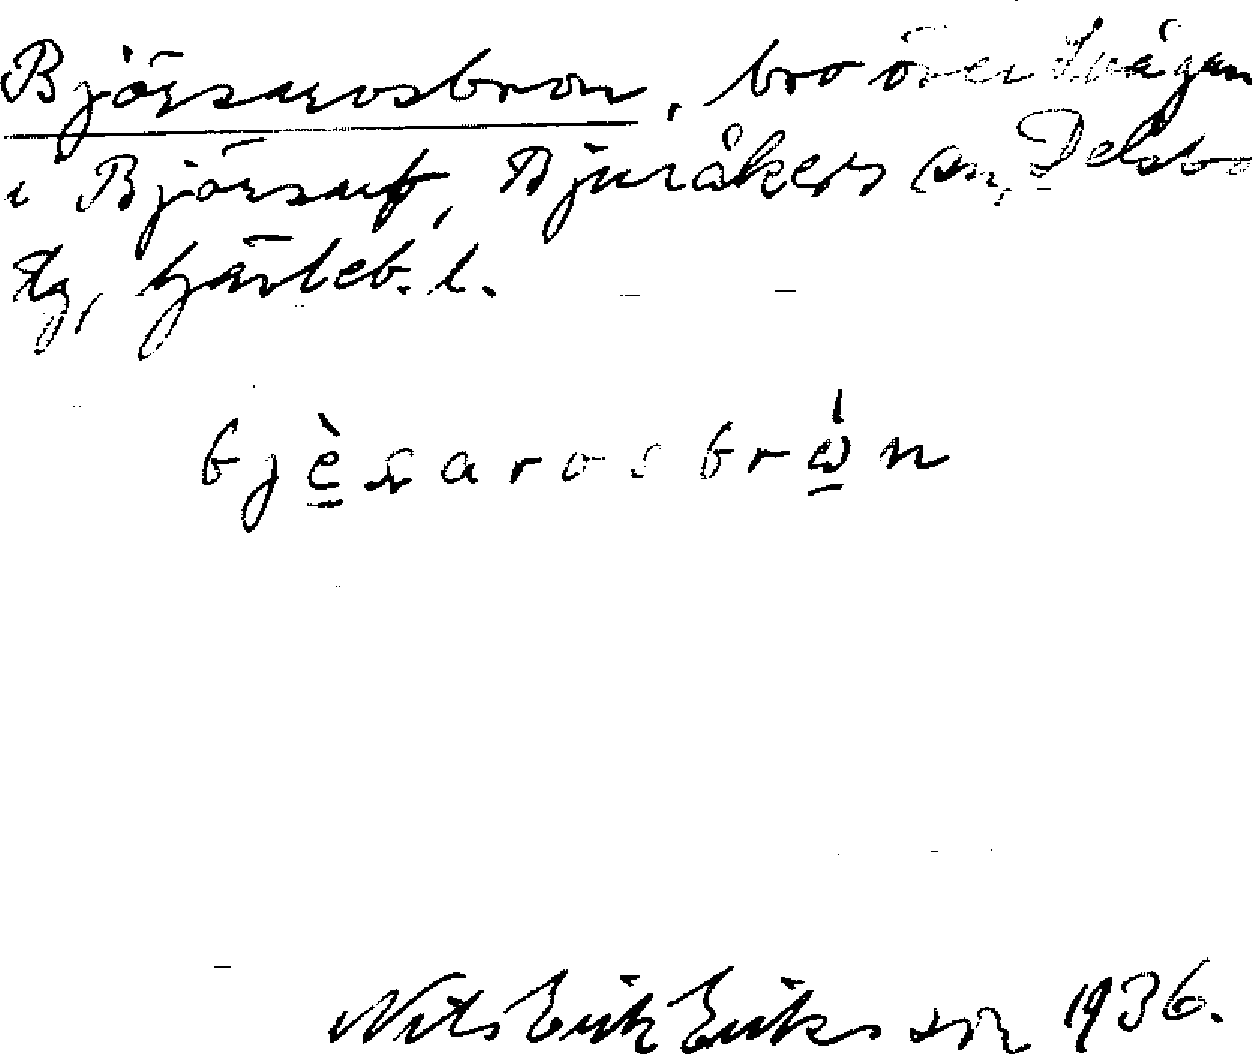 Björsarosbron, bro över Svågan
i Björsarf, Bjuråkers sn, Delsbo
tg, Gävleb. l.
bjèsarosbrón
Nils Erik Eriksson 1936.